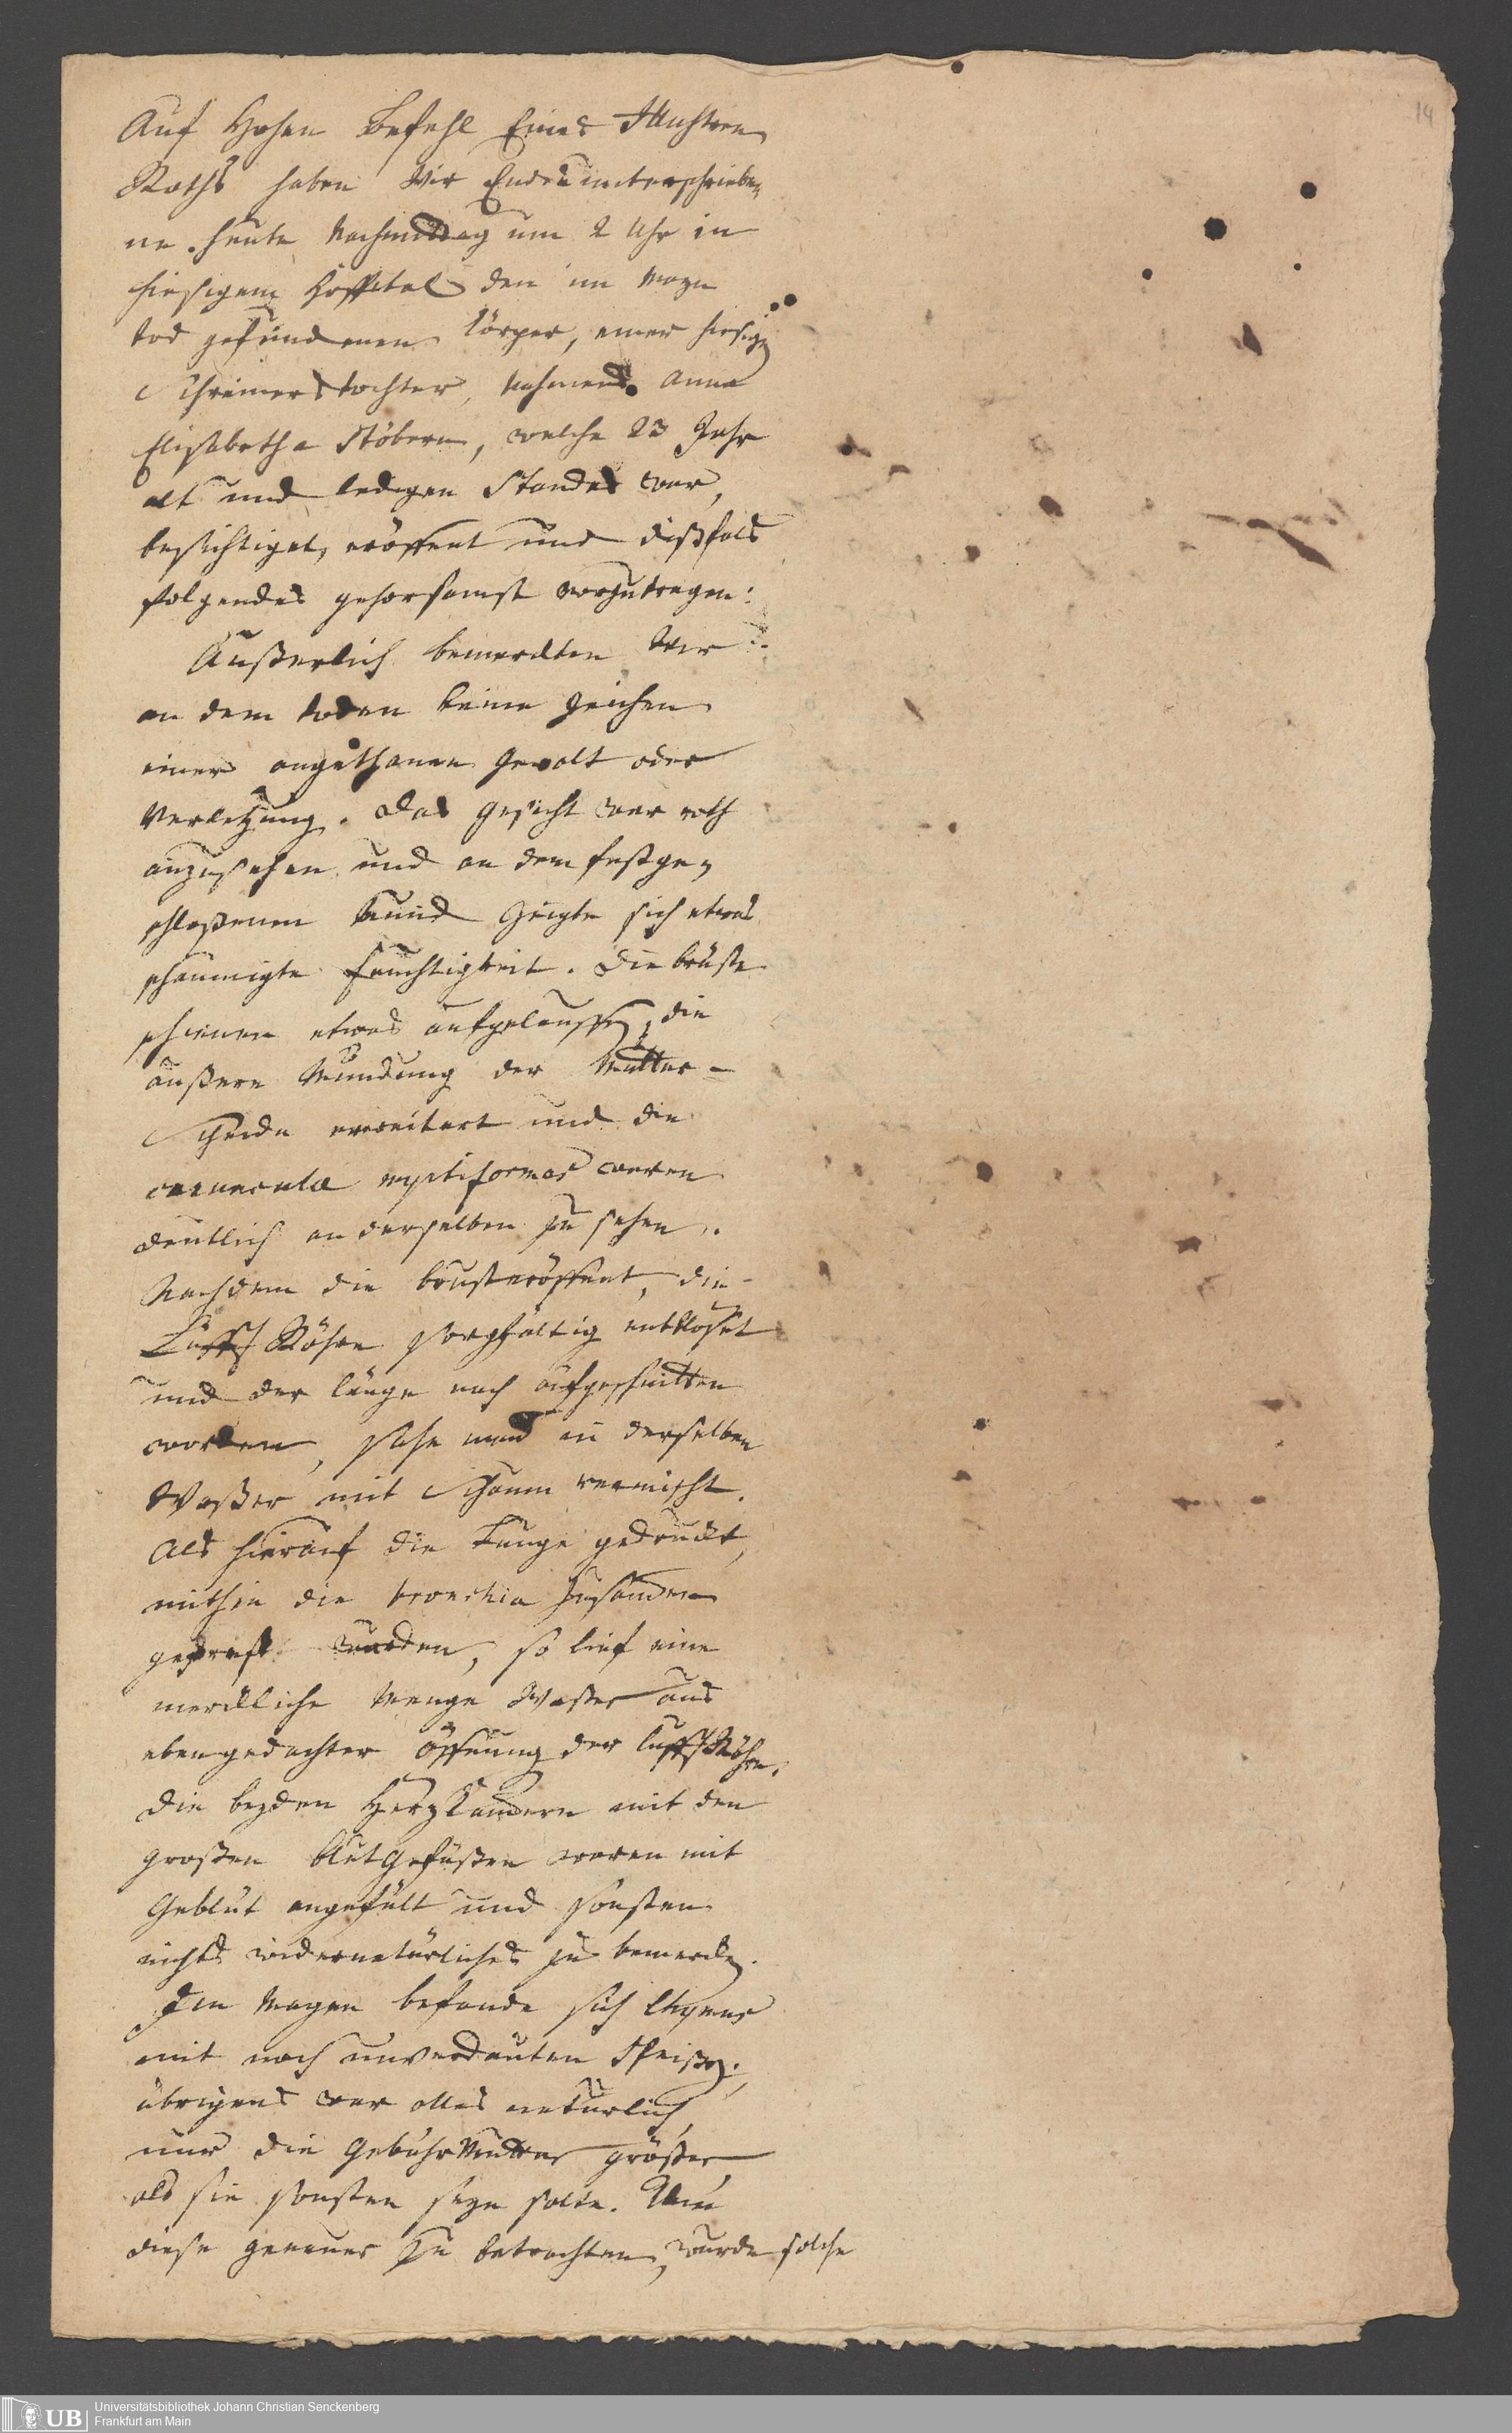 14
Auf Hohen Befehl Eines Illustren
Raths haben Wir Endesunterschriebe-
ne heute Nachmittag um 2 Uhr in
hiesigem Hospital den im Mayn
tod gefundenen Cörper, einer hiesigen
Schreinerstochter, Nahmens Anna
Elisabetha Stöbern, welche 23 Jahr
alt und ledigen Standes war,
besichtiget, eröffnet und dißfals
folgendes gehorsamst vorzutragen:
Äußerlich bemerckten Wir
an dem toden keine Zeichen
einer angethanen Gewalt oder
Verletzung. Das Gesicht war roth
anzusehen und an dem festge-
schloßenen Mund zeigte sich etwas
schäumigte Feuchtigkeit. Die brüste
schienen etwas aufgelauffen, die
äußere Mündung der Mutter-
Scheide erweitert und die
carunculæ myrtiformes waren
deutlich an derselben zu sehen.
Nachdem die brust eröffnet, die
Lufft Röhre sorgfältig entblöset
und der länge nach aufgeschnitten
worden, sahe man in derselben
Waßer mit Schaum vermischt.
Als hierauf die Lunge gedruckt,
mithin die bronchia zusammen
gepreßt wurden, so lief eine
merckliche Menge Waßer aus
ebengedachter öffnung der Lufft Röhre.
Die beyden Herzkammern mit den
großen Blutgefäßen waren mit
Geblüt angefült und sonsten
nichts widernatürliches zu bemercken.
Im Magen befande sich Chymus
mit noch unverdauten Speißen.
übrigens war alles natürlich,
nur die GebährMutter größer
als sie sonsten seyn solte. Um
diese genauer zu betrachten, wurde solche
Universitätsbibliothek Johann Christian Senckenberg
Frankfurt am Main
UB